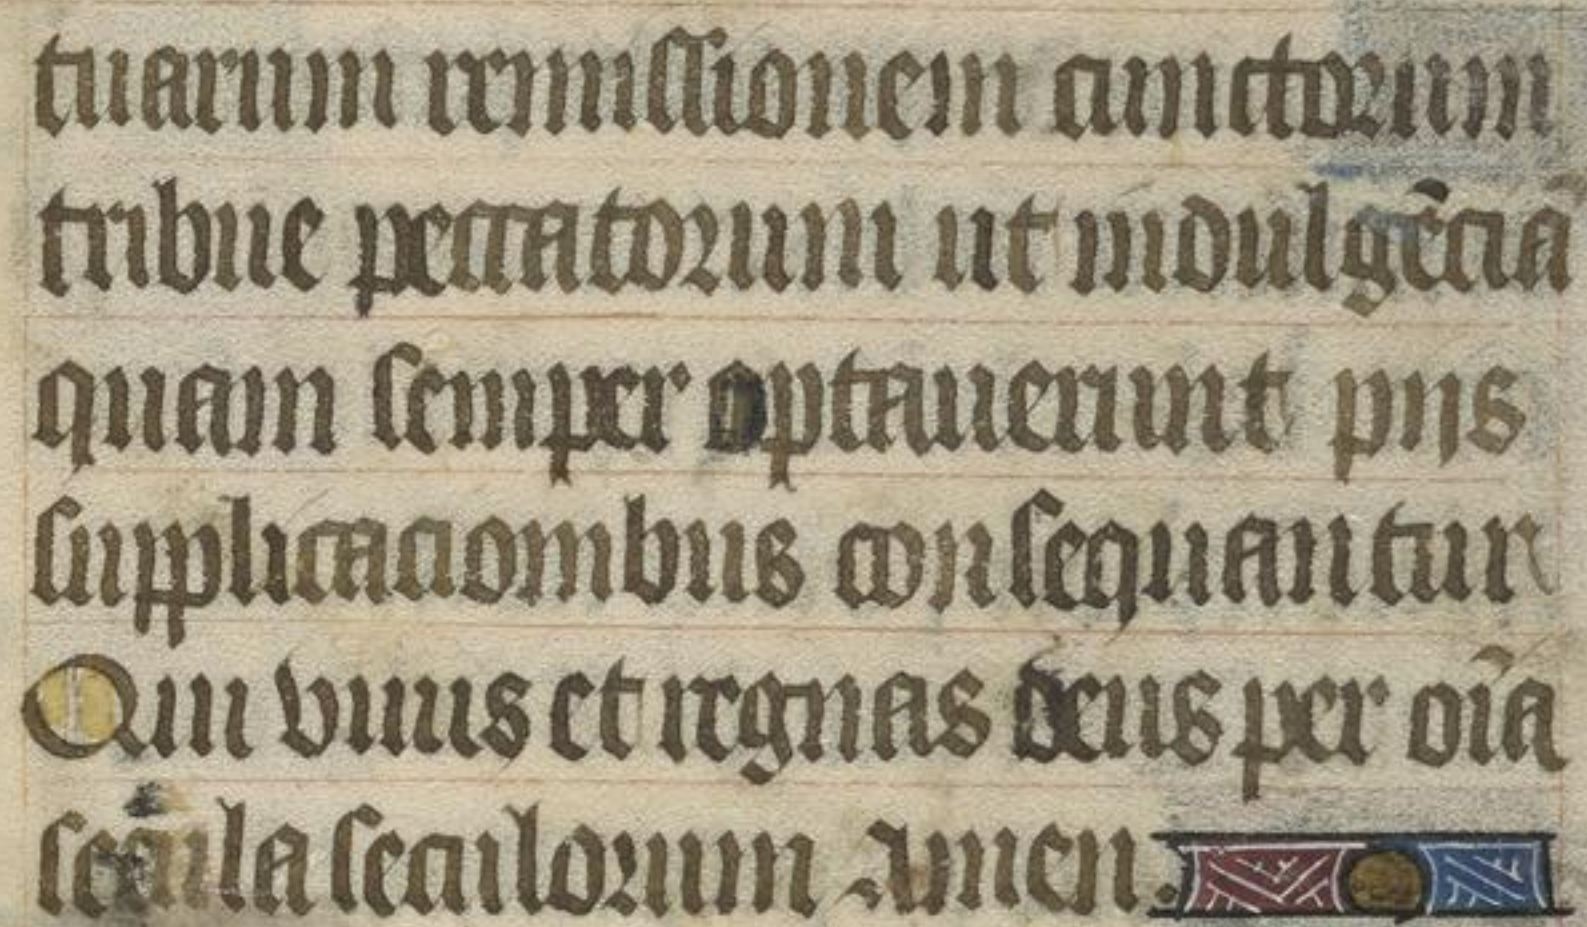 tuarum remissionem cunctorum
tribue peccatorum ut indulgẽciã
quam semper optauerunt pijs
supplicacionibus consequantur
Qui viuis et regnas deus per oĩa
secula seculorum Amen.